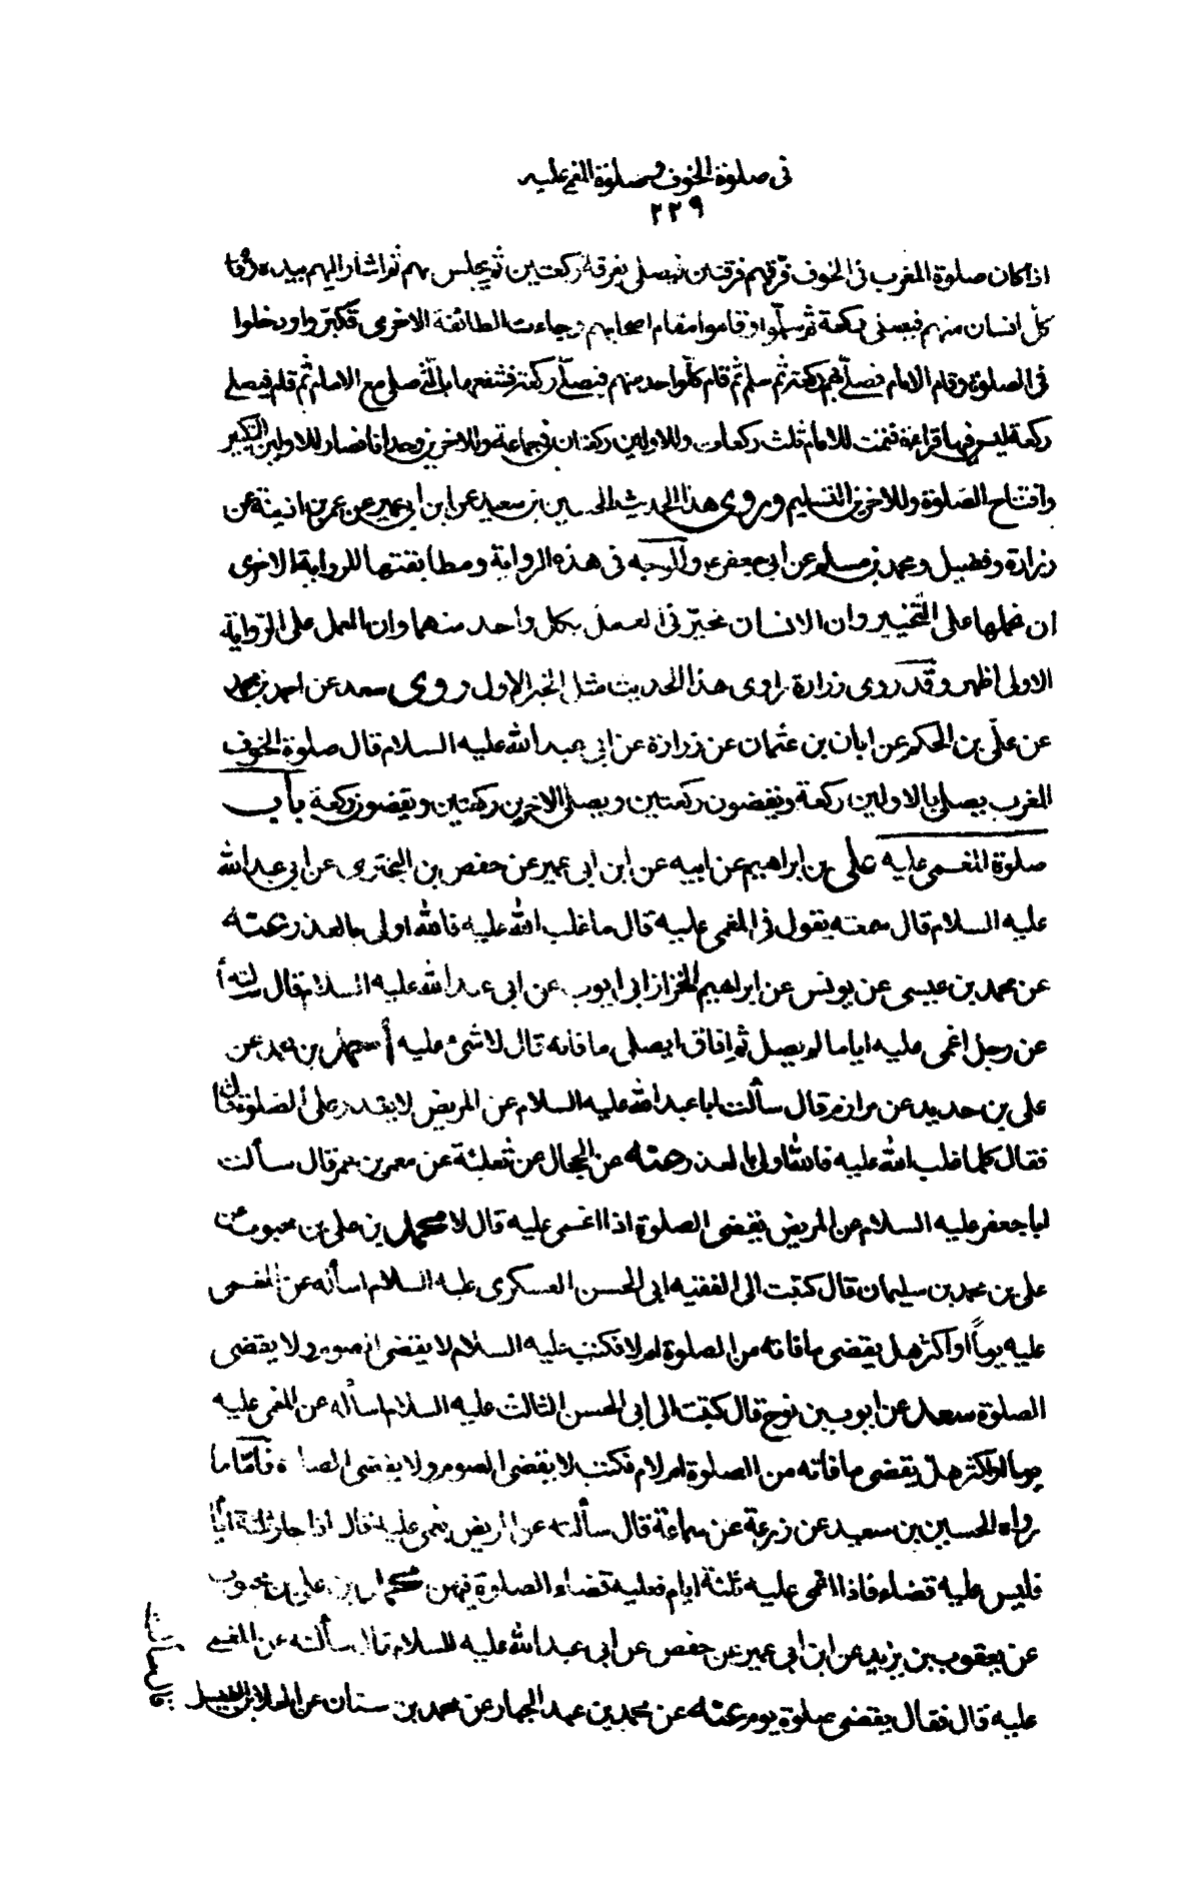 فى صلوة الخوف وصلوة المغمى عليه
٢٢٩
اذا كان صلوة المغرب فى الخوف فرّقهم فرقتين فيصلى بفرقة ركعتين ثم يجلس بهم ثم اشار اليهم بيده فقام
كلّ انسان منهم فيصلى ركعة ثم سلّموا وقاموا مقام اصحابهم وجاءت الطائفة الاخرى فكبّروا ودخلوا
فى الصلوة وقام الامام فصلّى بهم ركعة ثم سلم ثم قام كلّ واحد منهم فيصلّى ركعة فشفعها بالّتى صلى مع الامام ثم قام فيصلى
ركعة ليس فيها قراءة فتمت للامام ثلث ركعات وللاولين ركعتان فى جماعة وللاخرين وحدانا فصار للاولين التكبير
وافتتاح الصّلوة وللاخرين التسليم وروى هذا الحديث الحسين بن سعيد عن ابن ابى عمير عن عمر بن اذينة عن
زرارة وفضيل ومحمد بن مسلم عن ابى جعفر ع والوجه فى هذه الرواية ومطابقتها للرواية الاخرى
ان نحملها على التّخيير وان الانسان مخيّر فى العمل بكل واحد منهما وان العمل على الرّواية
الاولى اظهر وقد روى زرارة راوى هذا الحديث مثل الخبر الاول وروى سعد عن احمد بن محمد
عن علّى بن الحكم عن ابان بن عثمان عن زرارة عن ابى عبد الله عليه السلام قال صلوة الخوف
المغرب يصلى بالاولين ركعة ويقضون ركعتين ويصلى بالاخرين ركعتين ويقضون ركعة باب
صلوة المغمى عليه على بن ابراهيم عن ابيه عن ابن ابى عمير عن حفص بن البخترى عن ابى عبد الله
عليه السلام قال سمعته يقول فى المغمى عليه قال ما غلب الله عليه فالله اولى بالعذر عنه
عن محمد بن عيسى عن يونس عن ابراهيم الخزاز ابى ايوب عن ابى عبد الله عليه السلام قال سألته
عن رجل اغمى عليه اياما لم يصل ثم افاق ايصلى ما فاته قال لا شئ عليه سهل بن زياد عن
على بن حديد عن مرازم قال سألت ابا عبد الله عليه السلام عن المريض لا يقدر على الصّلوة قال
فقال كلما غلب الله عليه فالله اولى بالعذر عنه عن الحجال عن ثعلبة عن معمر بن عمر قال سألت
ابا جعفر عليه السلام عن المريض يقضى الصلوة اذا اغمى عليه قال لا محمد بن على بن محبوب عن
على بن محمد بن سليمان قال كتبت الى الفقيه ابى الحسن العسكرى عليه السلام اسأله عن المغمى
عليه يوماً او اكثر هل يقضى ما فاته من الصلوة ام لا فكتب عليه السلام لا يقضى الصوم ولا يقضى
الصلوة سعد عن ايوب بن نوح قال كتبت الى ابى الحسن الثالث عليه السلام اسأله عن المغمى عليه
يوما او اكثر هل يقضى ما فاته من الصلوة ام لا فكتب لا يقضى الصوم ولا يقضى الصلوة فامّا ما
رواه الحسين بن سعيد عن زرعة عن سماعة قال سألته عن المريض يغمى عليه قال اذا جاز ثلثة ايام
فليس عليه قضاء فاذا اغمى عليه ثلثة ايام فعليه قضاء الصلوة فيهن محمد بن على بن محبوب
عن يعقوب بن يزيد عن ابن ابى عمير عن حفص عن ابى عبد الله عليه السلام قال سألته عن المغمى
عليه قال فقال يقضى صلوة يوم عنه عن محمد بن عبد الجبار عن محمد بن سنان عن العلا بن الفضيل
قال سألت